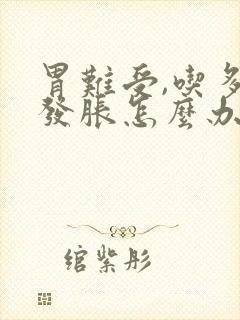 胃難受,喫多
發脹怎麼办
綰紫彤